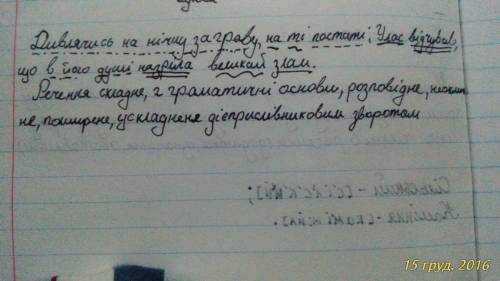 Дивлячись на нічну заграву, на ті постаті, Улас відчував,
що в його душі назріва великий злам.
Речення складне, 2 граматичні основи, розповідне, неоклич
не, поширене, ускладнене дієприслівниковим зворотом
15 груд. 2016